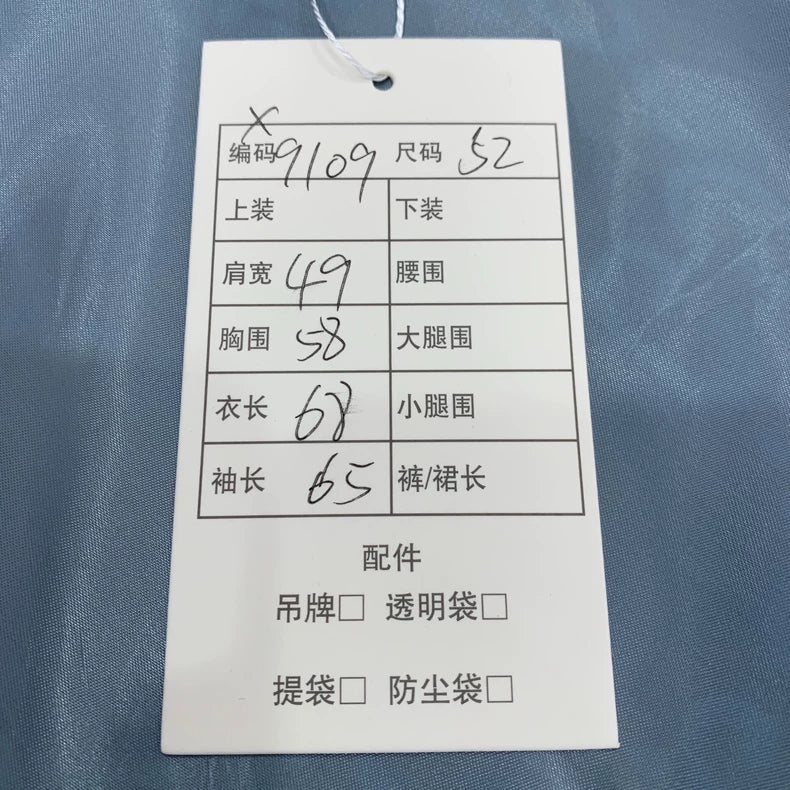 X
编码 9109 尺码 52
上装 下装
肩宽 49 腰围
胸围 58 大腿围
衣长 68 小腿围
袖长 65 裤/裙长
配件
吊牌□ 透明袋□
提袋□ 防尘袋□